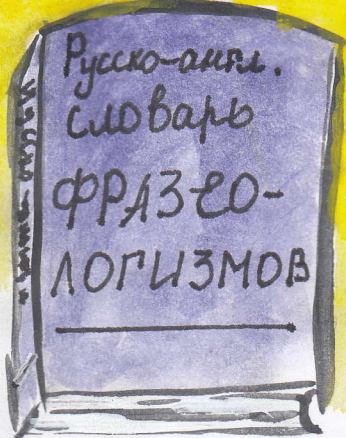 Русско-англ.
словарь
ФРАЗЕО-
ЛОГИЗМОВ